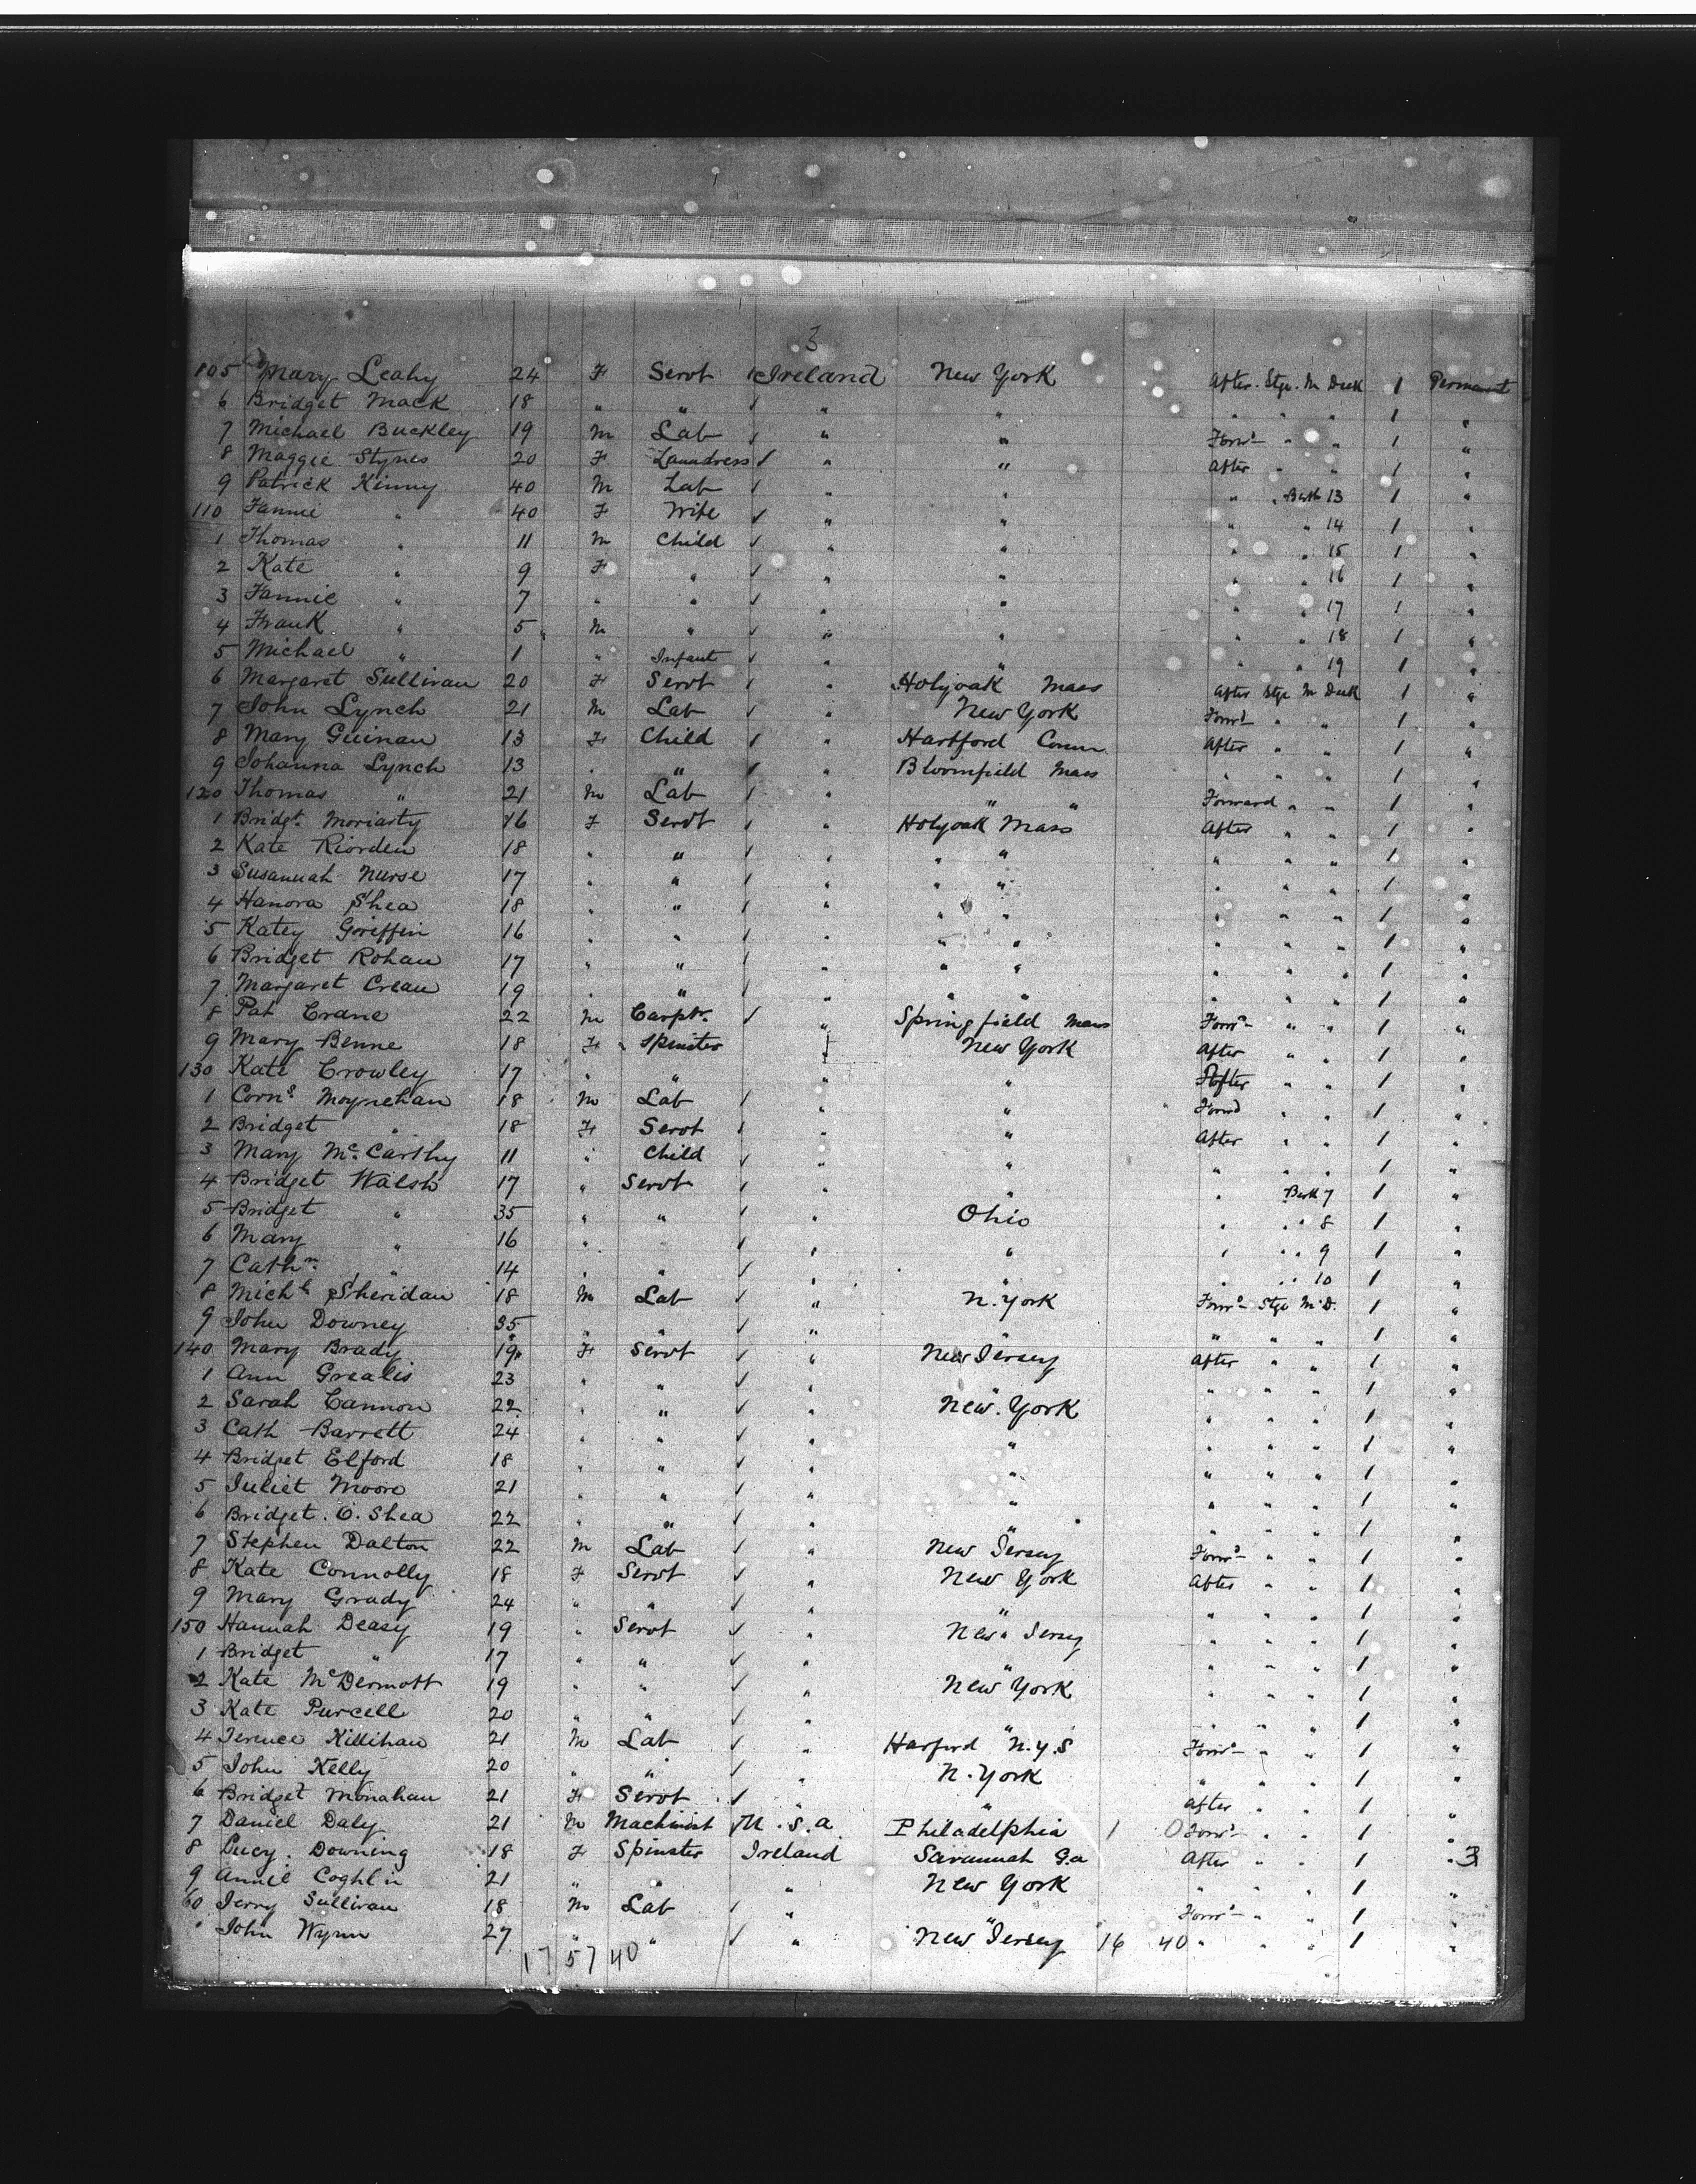 3
105 Mary Leahy 24 F Servt Ireland New York After. Stge. M Deck 1 Permanent
6 Bridget Mack 18 " " " " " " " 1 "
7 Michael Buckley 19 M Lab " " Forwd " " 1 "
8 Maggie Stynes 20 F Laundress " " After " " 1 "
9 Patrick Kinny 40 M Lab " " " " Berth 13 1 "
110 Fannie " 40 F Wife " " " " 14 1 "
1 Thomas " 11 M Child " " " " 15 1 "
2 Kate " 9 F " " " " " 16 1 "
3 Fannie " 7 " " " " " " 17 1 "
4 Frank " 5 M " " " " " 18 1 "
5 Michael " 1 " Infant " " " " 19 1 "
6 Margaret Sullivan 20 F Servt " Holyoak Mass After Stge M Deck 1 "
7 John Lynch 21 M Lab " New York Forwd " " 1 "
8 Mary Guinan 13 F Child " Hartford Conn After " " 1 "
9 Johanna Lynch 13 " " " Bloomfield Mass " " " 1 "
120 Thomas " 21 M Lab " " " Forward " " 1 "
1 Bridgt. Moriarty 16 F Servt " Holyoak Mass After " " 1 "
2 Kate Riorden 18 " " " " " " " " 1 "
3 Susannah Nurse 17 " " " " " " " " 1 "
4 Hanora Shea 18 " " " " " " " " 1 "
5 Katey Griffin 16 " " " " " " " " 1 "
6 Bridget Rohan 17 " " " " " " " " 1 "
7 Margaret Crean 19 " " " " " " " " 1 "
8 Pat Crane 22 M Carptr. " Springfield Mass Forwd " " 1 "
9 Mary Benne 18 F Spinster " New York After " " 1 "
130 Kate Crowley 17 " " " " After " " 1 "
1 Corns. Moynehan 18 M Lab " " Forwd " " 1 "
2 Bridget " 18 F Servt " " After " " 1 "
3 Mary McCarthy 11 " Child " " " " " 1 "
4 Bridget Walsh 17 " Servt " " " Berth 7 1 "
5 Bridget " 35 " " " Ohio " " " 8 1 "
6 Mary " 16 " " " " " " 9 1 "
7 Cathn. " 14 " " " " " " " 10 1 "
8 Michl Sheridan 18 M Lab " N. York Forwd Stge M.D. 1 "
9 John Downey 35 " " " " " " " 1 "
140 Mary Brady 19 F Servt " New Jersey After " " 1 "
1 Ann Grealis 23 " " " " " " " 1 "
2 Sarah Cannon 22 " " " New York " " " 1 "
3 Cath Barrett 24 " " " " " " " 1 "
4 Bridget Elford 18 " " " " " " " 1 "
5 Juliet Moore 21 " " " " " " " 1 "
6 Bridget. O. Shea 22 " " " " " " " 1 "
7 Stephen Dalton 22 M Lab " New Jersey Forwd " " 1 "
8 Kate Connolly 18 F Servt " New York After " " 1 "
9 Mary Grady 24 " " " " " " " 1 "
150 Hannah Deasy 19 " Servt " New Jersey " " " 1 "
1 Bridget " 17 " " " " " " " 1 "
2 Kate McDermott 19 " " " New York " " " 1 "
3 Kate Purcell 20 " " " " " " " 1 "
4 Terence Killihan 21 M Lab " Harford N.Y.S Forwd " " 1 "
5 John Kelly 20 " " " N. York " " " 1 "
6 Bridget Monahan 21 F Servt " " After " " 1 "
7 Daniel Daly 21 M Machinist U.S.A Philadelphia 1 0 Forwd " " 1 "
8 Lucy. Downing 18 F Spinster Ireland Savannah Ga After " " 1 " 3
9 Annie Coghlin 21 " " " New York " " " 1 "
60 Jerry Sullivan 18 M Lab " " Forwd " " 1 "
John Wynn 27 " " " New Jersey 16 40 " " " 1 "
17 57 40